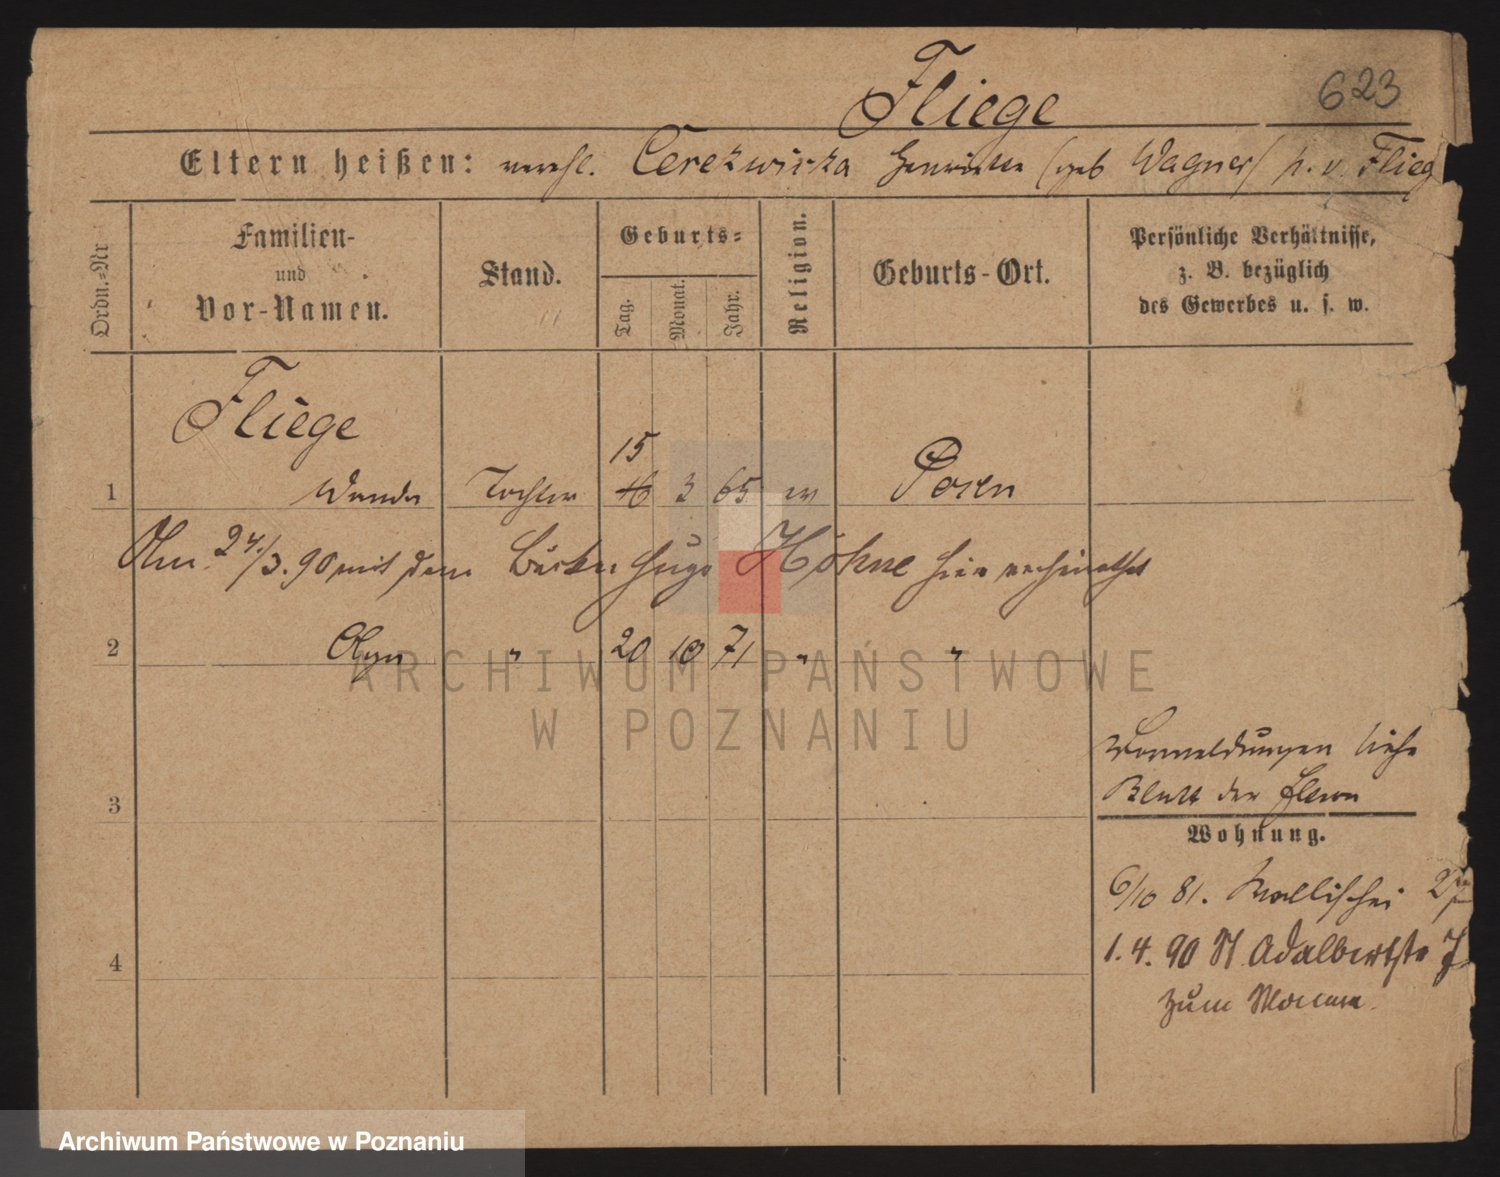 Fliege
623
Eltern heißen: verehl. Cerekwicka Henriette (geb Wagner) fr. v. Flieg
Ordn.-Nr
Familien-
und
Vor-Namen.
Stand.
Geburts-
Tag.
Monat.
Jahr.
Religion.
Geburts-Ort.
Persönliche Verhältnisse,
z. B. bezüglich
des Gewerbes u. s. w.
Fliege
15
1 Wanda Tochter 16 3 65 ev Posen
Am 24./3. 90 mit dem Bäcker Hugo Höhne hier verheirathet
2 Olga " 20 10 71 " "
ARCHIWUM PAŃSTWOWE
W POZNANIU
Vormeldungen siehe
Blatt der Eltern
3
Wohnung.
6/10 81. Wallischei
1. 4. 90 St Adalbertstr 7
4
zum Manne
Archiwum Państwowe w Poznaniu